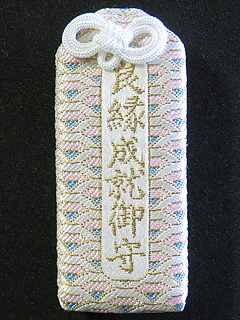 良縁成就御守